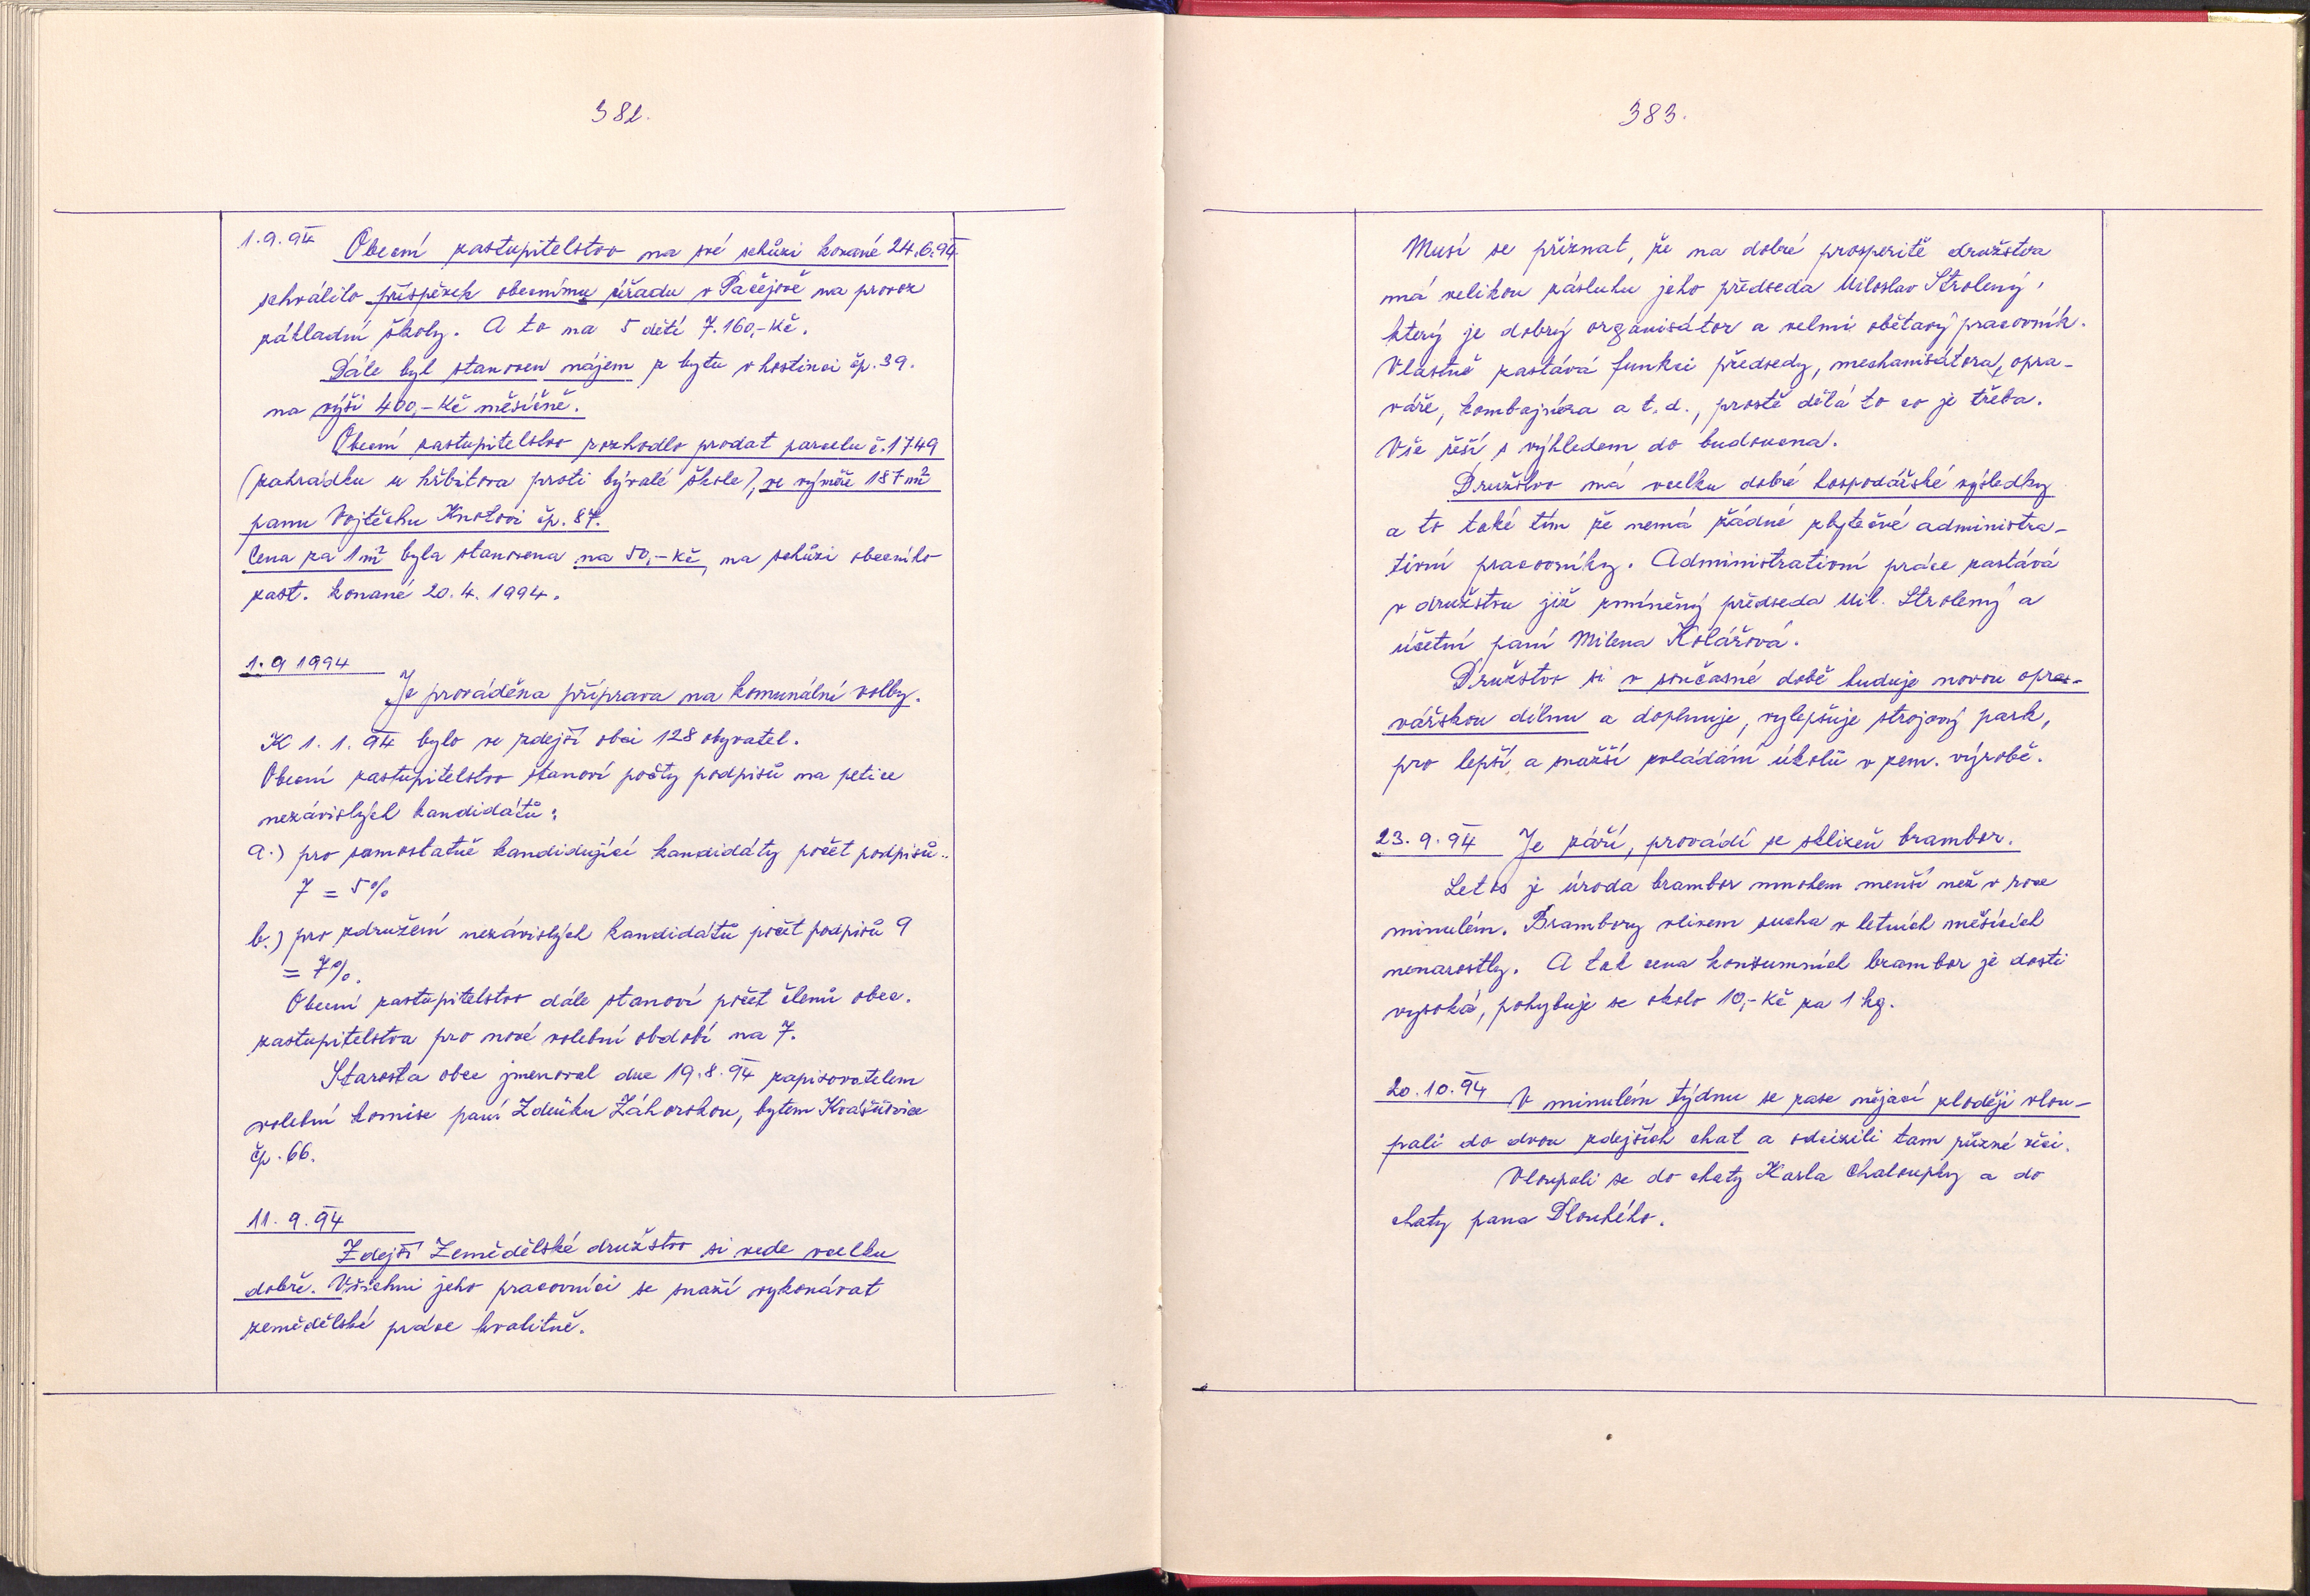 382.
1.9.94 Obecní zastupitelstvo na své schůzi konané 24.6.94
schválilo příspěvek obecnímu úřadu v Pačejově na provoz
základní školy. A to na 5 dětí 7.160,-Kč.
Dále byl stanoven nájem z bytu v hostinci čp. 39.
na výši 400,-Kč měsíčně.
Obecní zastupitelstvo rozhodlo prodat parcelu č. 1749
(zahrádku u hřbitova proti bývalé škole), ve výměře 187 m²
panu Vojtěchu Knotovi čp. 87.
Cena za 1 m² byla stanovena na 50,-Kč, na schůzi obecního
zast. konané 20.4.1994.
1.9 1994
Je prováděna příprava na komunální volby.
K 1.1.94 bylo ve zdejší obci 128 obyvatel.
Obecní zastupitelstvo stanoví počty podpisů na petice
nezávislých kandidátů:
a.) pro samostatně kandidující kandidáty počet podpisů..
7 = 5%
b.) pro združení nezávislých kandidátů počet podpisů 9
= 7%.
Obecní zastupitelstvo dále stanoví počet členů obec.
zastupitelstva pro nové volební období na 7.
Starosta obce jmenoval dne 19.8.94 zapisovatelem
volební komise paní Zdeňku Záhorskou, bytem Kvášňovice
čp. 66.
11.9.94
Zdejší Zemědělské družstvo si vede vcelku
dobře. Všichni jeho pracovníci se snaží vykonávat
zemědělské práce kvalitně.
383.
Musí se přiznat, že na dobré prosperitě družstva
má velikou zásluhu jeho předseda Miloslav Strolený,
který je dobrý organisátor a velmi obětavý pracovník.
Vlastně zastává funkci předsedy, mechanisátora, opra-
váře, kombajnéra a t.d., prostě dělá to co je třeba.
Vše řeší s výhledem do budoucna.
Družstvo má vcelku dobré hospodářské výsledky
a to také tím že nemá žádné zbytečné administra-
tivní pracovníky. Administrativní práce zastává
v družstvu již zmíněný předseda Mil. Strolený a
účetní paní Milena Kolářová.
Družstvo si v současné době buduje novou opra-
vářskou dílnu a doplnuje, vylepšuje strojový park,
pro lepší a snažší zvládání úkolů v zem. výrobě.
23.9.94 Je září, provádí se sklizeň brambor.
Letos je úroda brambor mnohem menší než v roce
minulém. Brambory vlivem sucha v letních měsících
nenarostly. A tak cena konzumních brambor je dosti
vysoká, pohybuje se okolo 10,-Kč za 1 kg.
20.10.94 V minulém týdnu se zase nějací zloději vlou-
pali do dvou zdejších chat a odcizili tam různé věci.
Vloupali se do chaty Karla Chaloupky a do
chaty pana Dlouhého.